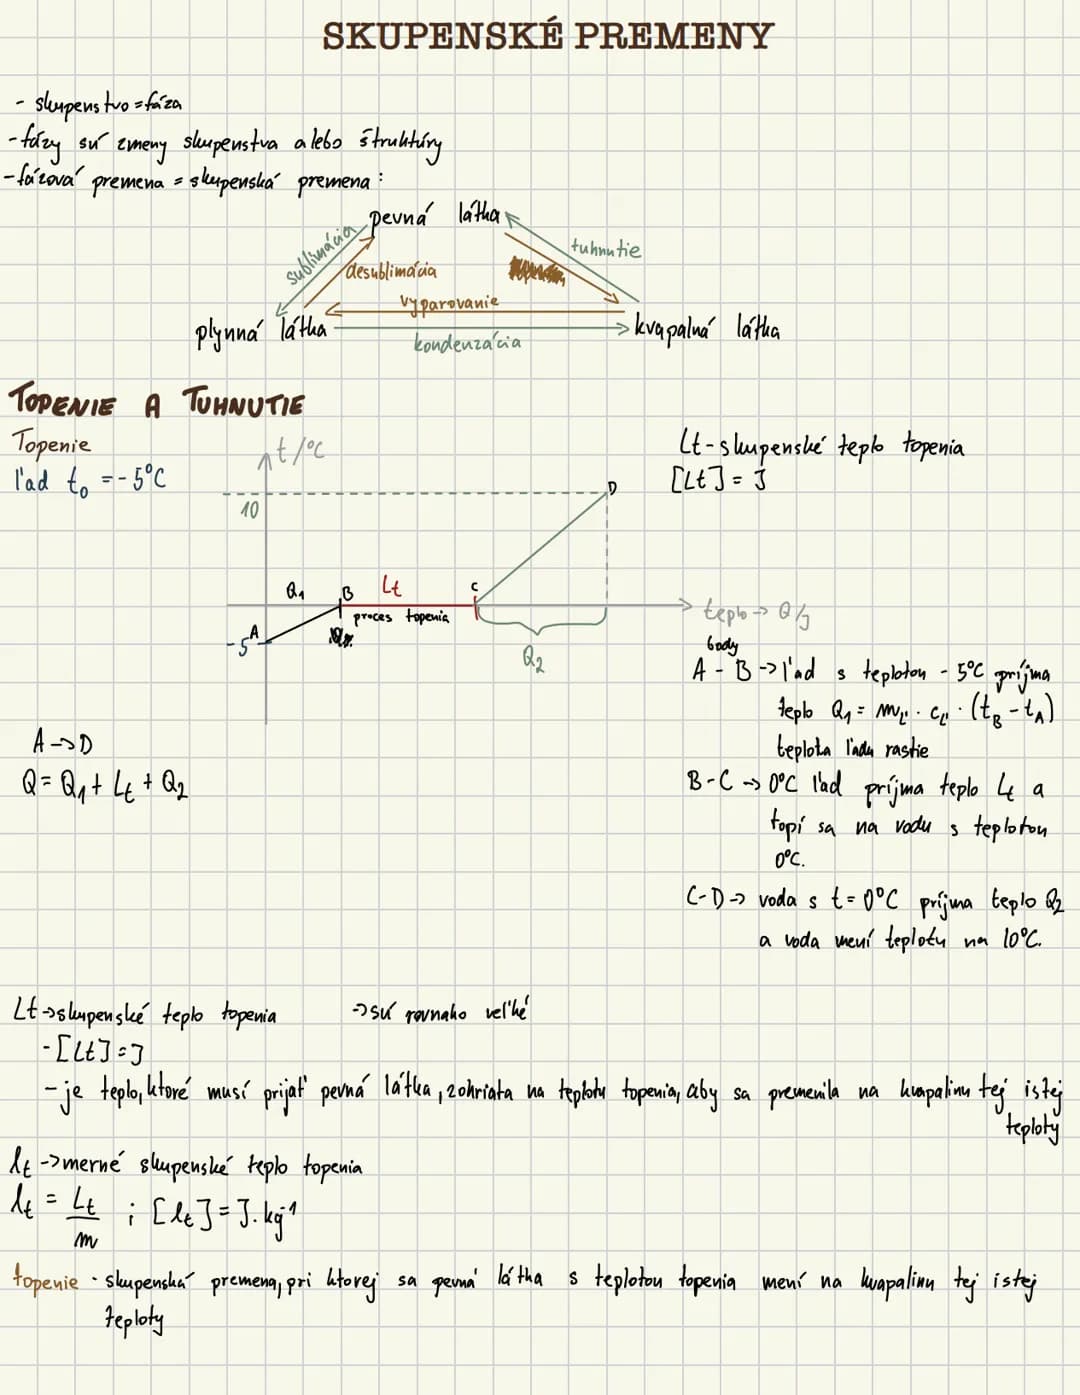 SKUPENSKÉ PREMENY
- skupenstvo = fáza
- fázy sú zmeny skupenstva alebo štruktúry
- fázová premena = skupenská premena:
pevná látka
sublimácia
tuhnutie
desublimácia
vyparovanie
plynná látka
kvapalná látka
kondenzácia
TOPENIE A TUHNUTIE
Topenie
ľad t₀ = -5°C
t/°C
Lt - skupenské teplo topenia
[Lt] = J
10
D
Q₁
B
Lt
C
proces topenia
-5
A
teplo → Q/J
Q₂
body
A - B → ľad s teplotou - 5°C príjma
teplo Q₁ = mľ · cľ · (t_B - t_A)
teplota ľadu rastie
B - C → 0°C ľad príjma teplo Lt a
topí sa na vodu s teplotou
0°C.
C - D → voda s t = 0°C príjma teplo Q₂
a voda mení teplotu na 10°C.
A → D
Q = Q₁ + Lt + Q₂
Lt → skupenské teplo topenia → sú rovnako veľké
- [Lt] = J
- je teplo, ktoré musí prijať pevná látka, zohriata na teplotu topenia, aby sa premenila na kvapalinu tej istej
teploty
lt → merné skupenské teplo topenia
lt = Lt/m ; [lt] = J.kg⁻¹
topenie - skupenská premena, pri ktorej sa pevná látka s teplotou topenia mení na kvapalinu tej istej
teploty